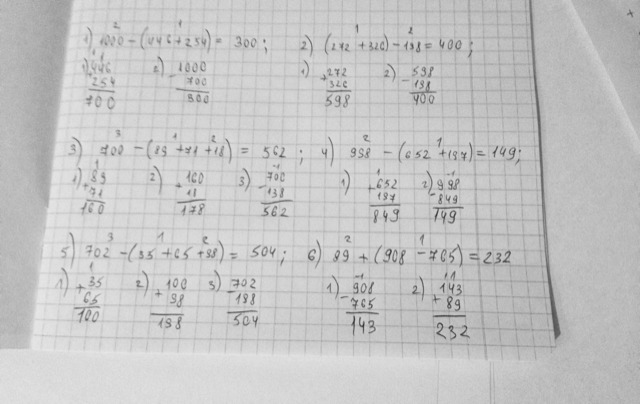 2 1 1 2
1) 1000 − (446 + 254) = 300; 2) (272 + 326) − 198 = 400;
1) 446 2) 1000 1) 272 2) 598
+ 254 − 700 + 326 − 198
700 300 598 400
3 1 2 2 1
3) 700 − (89 + 71 + 18) = 562; 4) 998 − (652 + 197) = 149;
1) 89 2) 160 3) 700 1) 652 2) 998
+ 71 + 18 − 138 + 197 − 849
160 178 562 849 149
3 1 2 2 1
5) 702 − (35 + 65 + 98) = 504; 6) 89 + (908 − 765) = 232
1) 35 2) 100 3) 702 1) 908 2) 143
+ 65 + 98 − 198 − 765 + 89
100 198 504 143 232